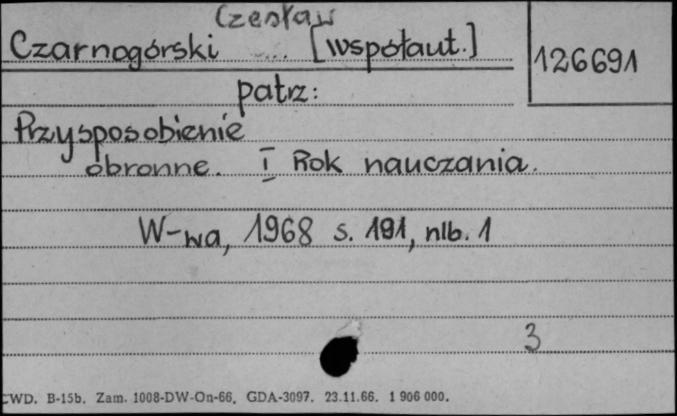 Czesław
Czarnogórski [współaut.]
126691
patrz:
Przysposobienie
obronne. I Rok nauczania.
W-wa, 1968 s. 191, nlb. 1
3
CWD. B-15b. Zam. 1008-DW-On-66. GDA-3097. 23.11.66. 1 906 000.